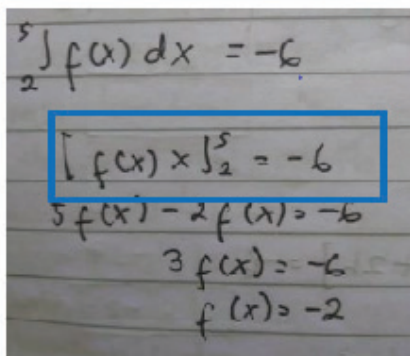 ⁵₂∫ f(x) dx = -6
[f(x) x]⁵₂ = -6
5f(x) - 2f(x) = -6
3f(x) = -6
f(x) = -2